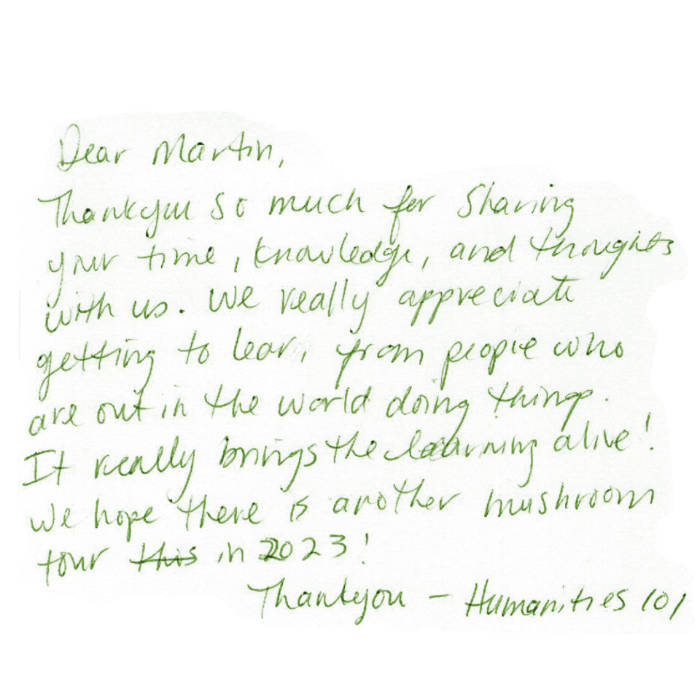 Dear Martin,
Thankyou so much for sharing
your time, knowledge, and thoughts
with us. We really appreciate
getting to learn from people who
are out in the world doing things.
It really brings the learning alive!
We hope there is another mushroom
tour this in 2023!
Thankyou – Humanities 101